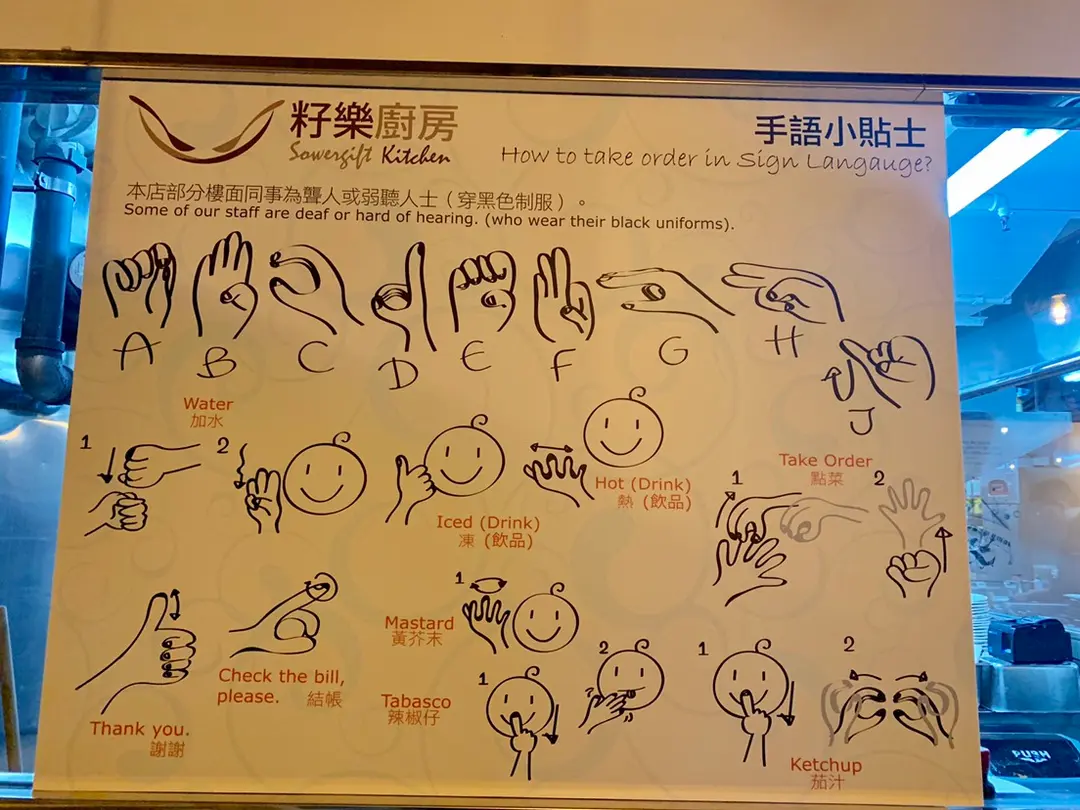 籽樂廚房
Sowergift Kitchen
手語小貼士
How to take order in Sign Langauge?
本店部分樓面同事為聾人或弱聽人士（穿黑色制服）。
Some of our staff are deaf or hard of hearing. (who wear their black uniforms).
A B C D E F G H
J
Water
加水
1 2
Iced (Drink)
凍 (飲品)
Hot (Drink)
熱 (飲品)
Take Order
點菜
1 2
Thank you.
謝謝
Check the bill,
please. 結帳
Mastard
黃芥末
1
Tabasco
辣椒仔
1 2
1 2
Ketchup
茄汁
PUSH